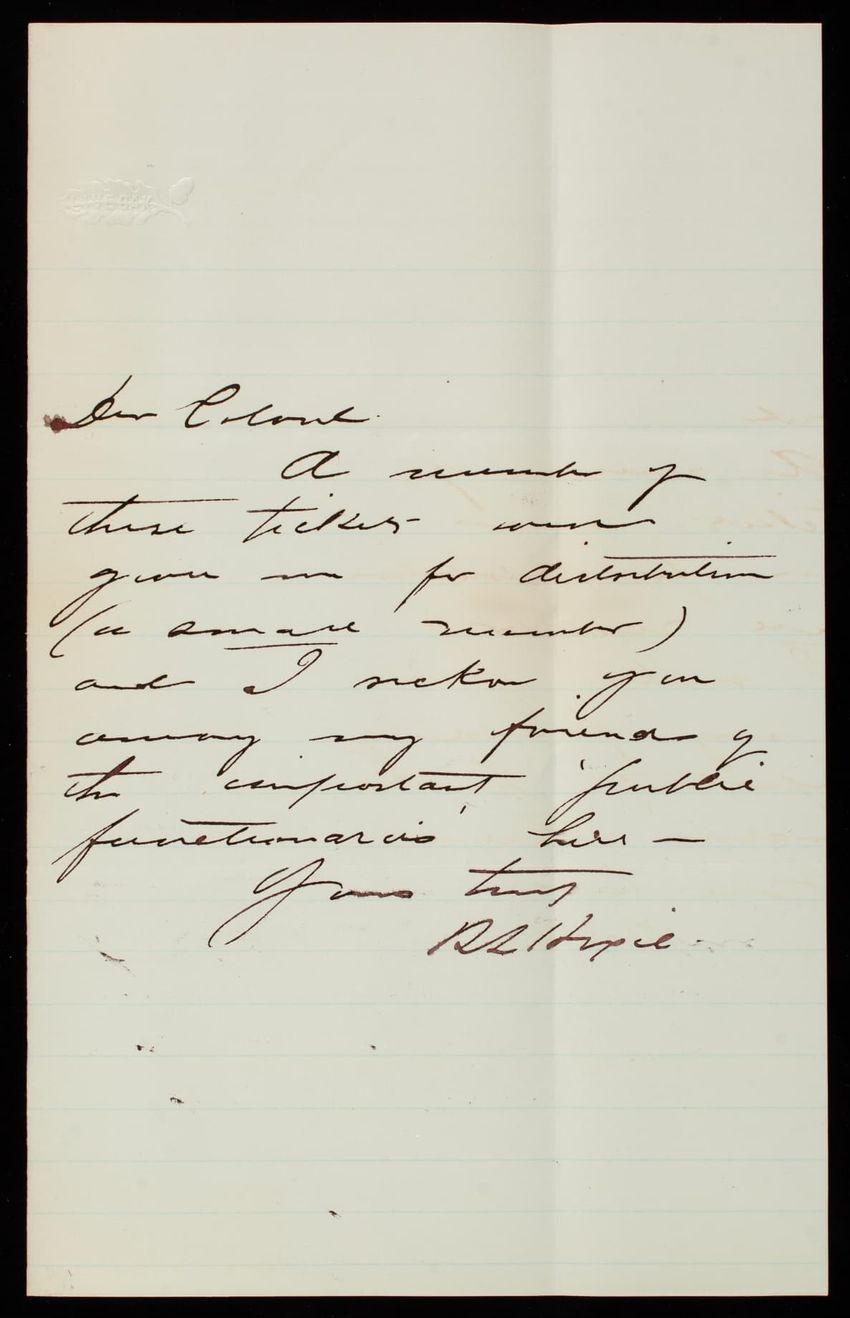 Dear Colonel
A number of
these tickets were
given me for distribution
(a small number)
and I reckon you
among my friends &
the important 'public
functionaries' here —
Yours truly
R L Hoxie